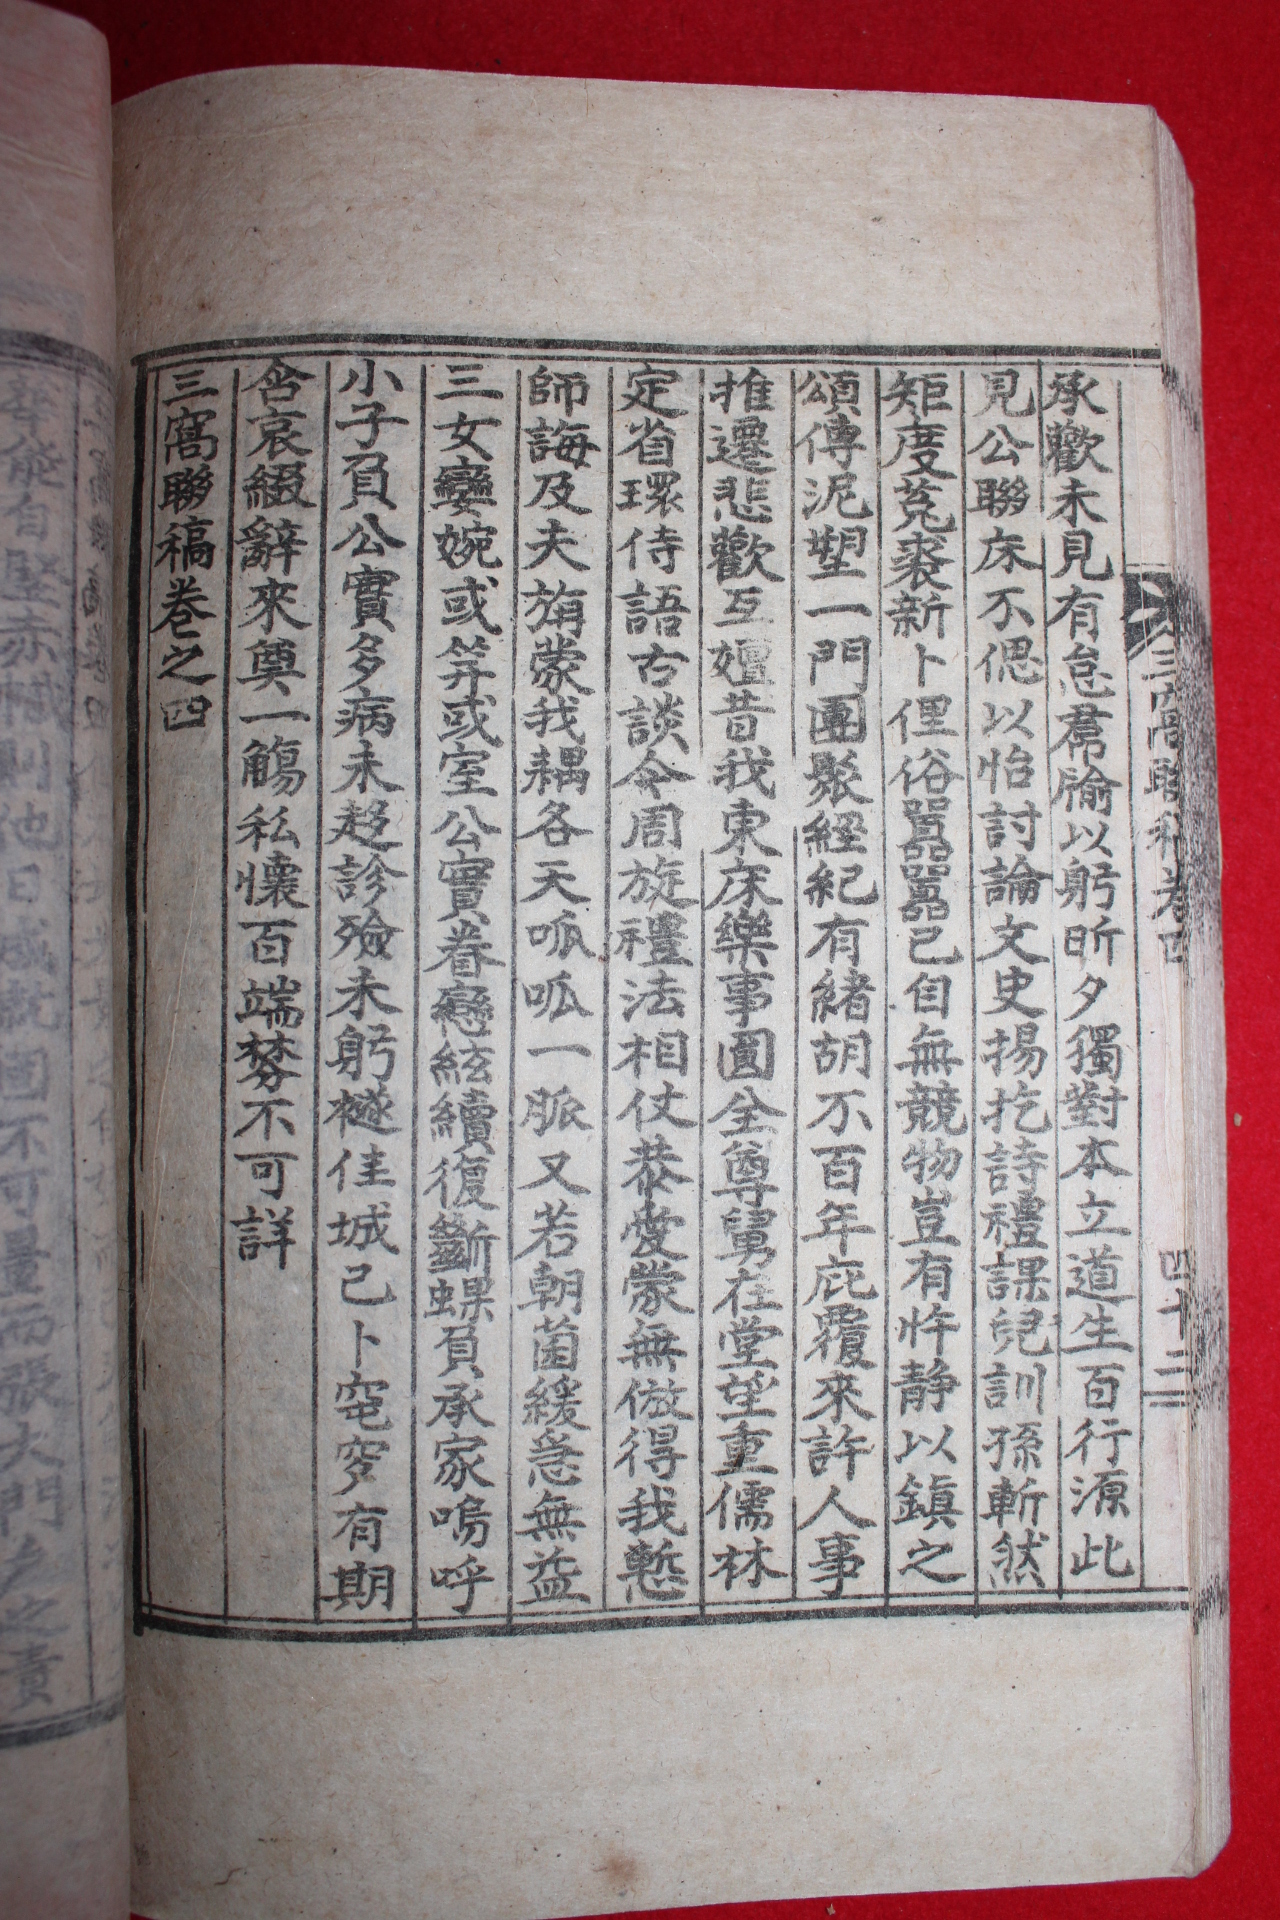 承歡未見有怠喬喩以躬昕夕獨對本立道生百行源此
見公聯床不偲以怡討論文史揚扢詩禮課兒訓孫斬然
矩度菟裘新卜俚俗囂囂已自無競物豈有忤静以鎮之
頌傳泥塑一門團聚經紀有緖胡不百年庇覆來許人事
推遷悲歡互嬗昔我東床樂事圓全尊舅在堂望重儒林
定省環侍語古談今周旋禮法相仗恭愛蒙無倣得我慙
師誨及夫旃蒙我耦各天呱呱一脈又若朝菌緩急無益
三女孌婉或笄或室公實眷戀絃續復斷螺負承家嗚呼
小子負公實多病未趍診殮未躬襚佳城已卜窀穸有期
含哀綴辭來奠一觴私懷百端棼不可詳
三窩聯稿卷之四
三窩聯稿卷四
四十二